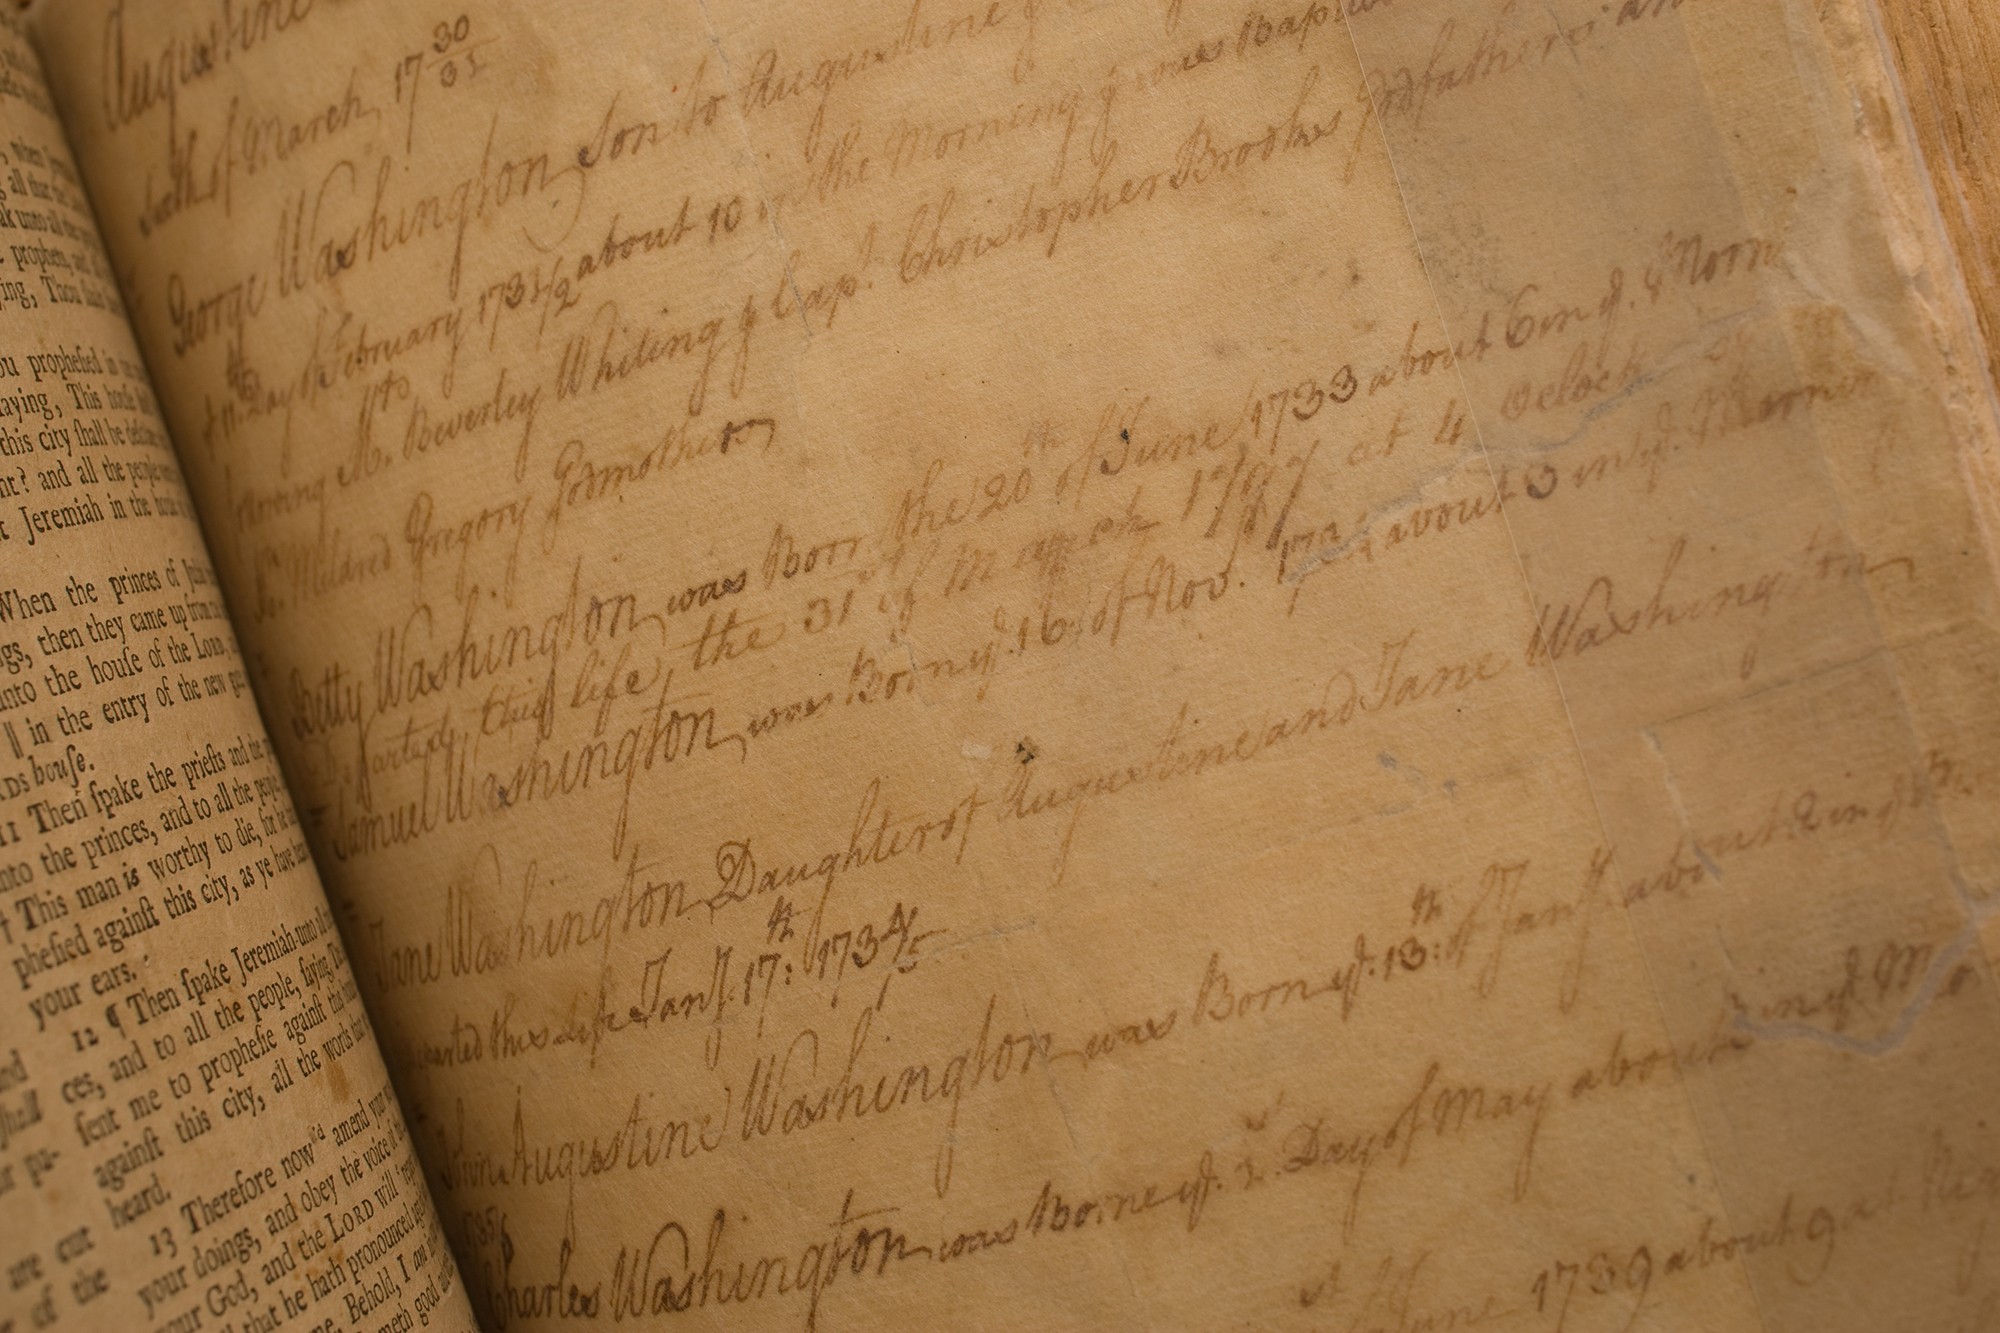 all that
unto all the
prophets, and
Thou shalt
prophesied in
saying, This house shall
this city shall be desolate
and all the people
Jeremiah in the house of
When the princes of
then they came up from
unto the house of the LORD,
‖ in the entry of the new
house.
11 Then ſpake the prieſts and the
unto the princes, and to all the people
† This man is worthy to die, for he
pheſied againſt this city, as ye have
your ears.
12 ¶ Then ſpake Jeremiah unto all
ces, and to all the people, ſaying, The
ſent me to propheſie againſt this
againſt this city, all the words that
heard.
13 Therefore now amend your
your doings, and obey the voice of the
your God, and the LORD will
that he hath pronounced
Behold, I am
good
ſhall
are cut
of the
Augustine
of March 17 30/31
George Washington Son to Augustine &
11th Day of February 1731/2 about 10 in the Morning & was
Mr. Beverley Whiting & Capt. Christopher Brooks Godfathers and
Mrs. Mildred Gregory Godmother
Betty Washington was Born the 20th of June 1733 about 6 in ye. Morn
Departed this life, the 31 of March 1797 at 4 Oclock
Samuel Washington was Born ye. 16 of Nov. about 3 in ye. Morning
Jane Washington Daughter of Augustine and Jane Washington
departed this Life Jany. 17th: 1734/5
John Augustine Washington was Born ye. 13th: of Jany. about 2 in ye
1735/6
Charles Washington was Borne ye. 2d. Day of May about 3 in ye. Mo
June 1739 about 9 at